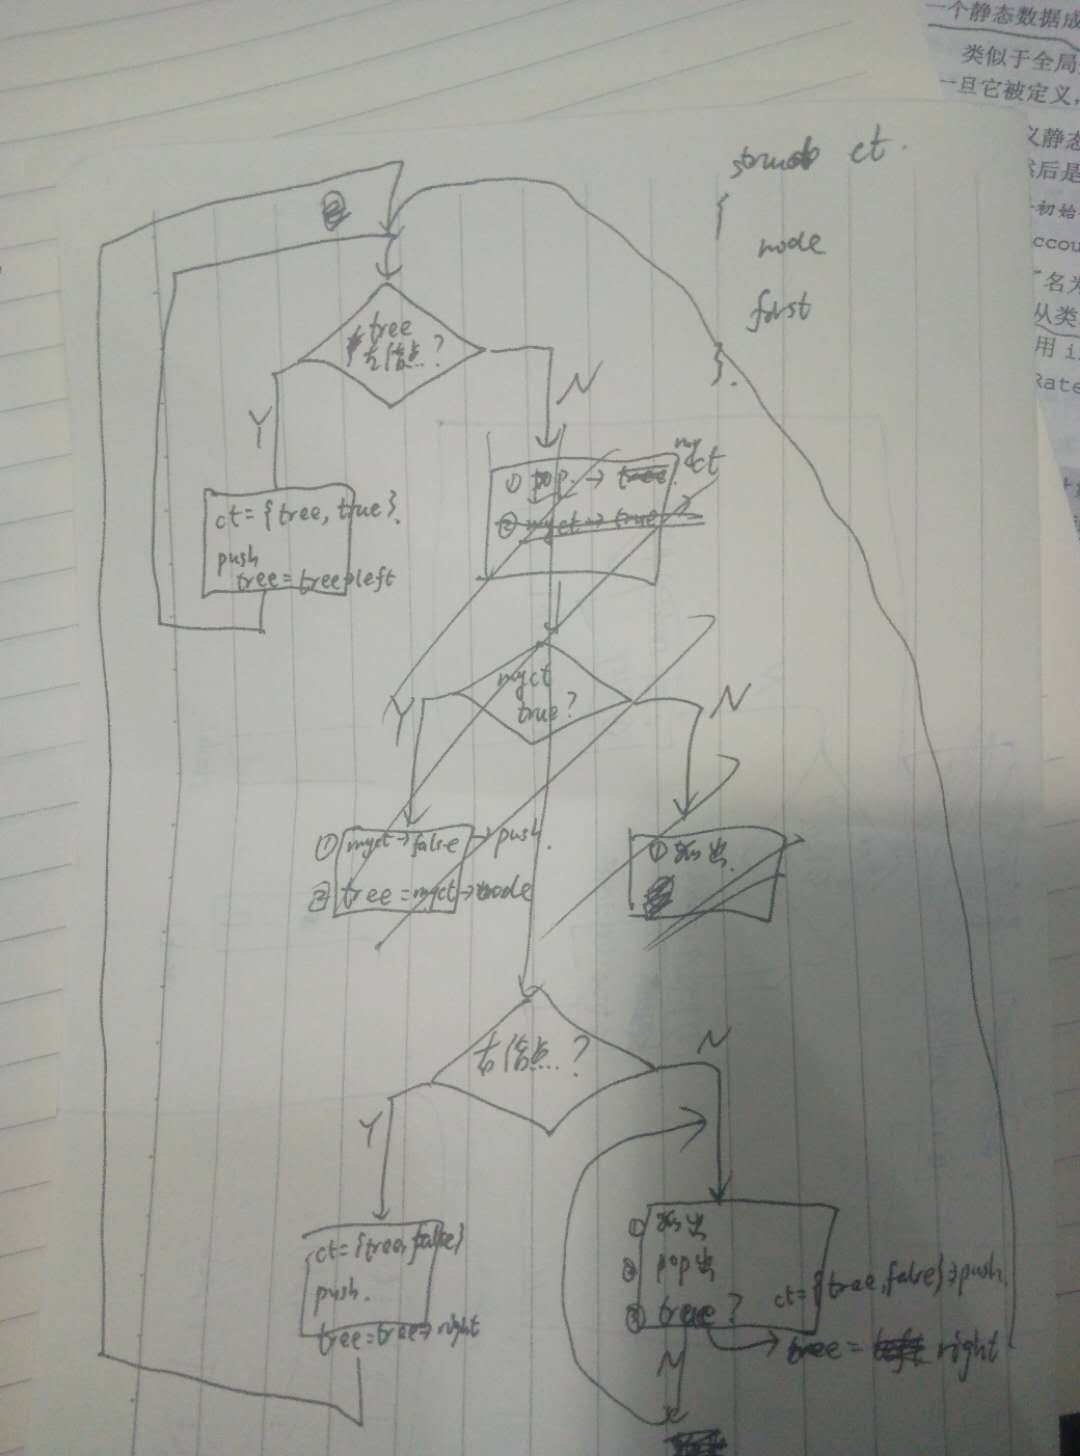 一个静态数据成
类似于全局
一旦它被定义，
义静态
然后是
初始
ccou
名为
从类
用 i
Rate
struct ct.
{
node
first
}.
tree
左结点..?
Y
N
ct={tree, true}.
push
tree=tree→left
① pop. → myct
② myct→true
myct
true?
Y
N
① myct→false → push.
② tree=myct→node
① 输出
右结点...?
Y
N
ct={tree, false}
push.
tree=tree→right
① 输出
② pop出
③ true?
ct={tree, false}→push.
tree = right
N